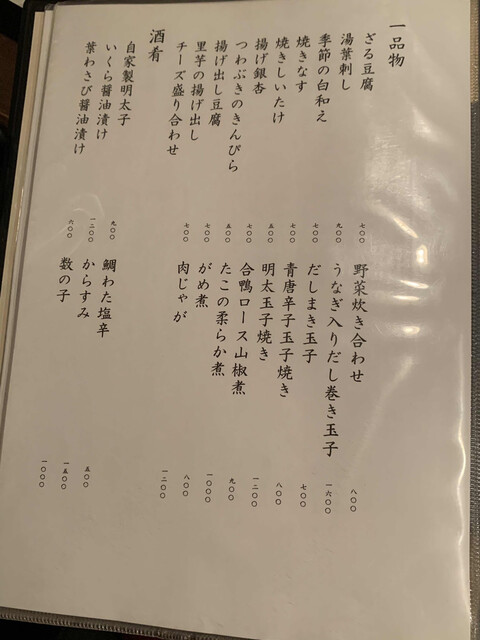 一品物
ざる豆腐
湯葉刺し
季節の白和え
焼きなす
焼きしいたけ
揚げ銀杏
つわぶきのきんぴら
揚げ出し豆腐
里芋の揚げ出し
チーズ盛り合わせ
七〇〇
九〇〇
七〇〇
七〇〇
五〇〇
七〇〇
五〇〇
七〇〇
七〇〇
野菜炊き合わせ
うなぎ入りだし巻き玉子
だしまき玉子
青唐辛子玉子焼き
明太玉子焼き
合鴨ロース山椒煮
たこの柔らか煮
がめ煮
肉じゃが
八〇〇
一六〇〇
七〇〇
八〇〇
一二〇〇
九〇〇
一〇〇〇
八〇〇
一二〇〇
酒肴
自家製明太子
いくら醤油漬け
葉わさび醤油漬け
九〇〇
一二〇〇
六〇〇
鯛わた塩辛
からすみ
数の子
五〇〇
一五〇〇
一〇〇〇